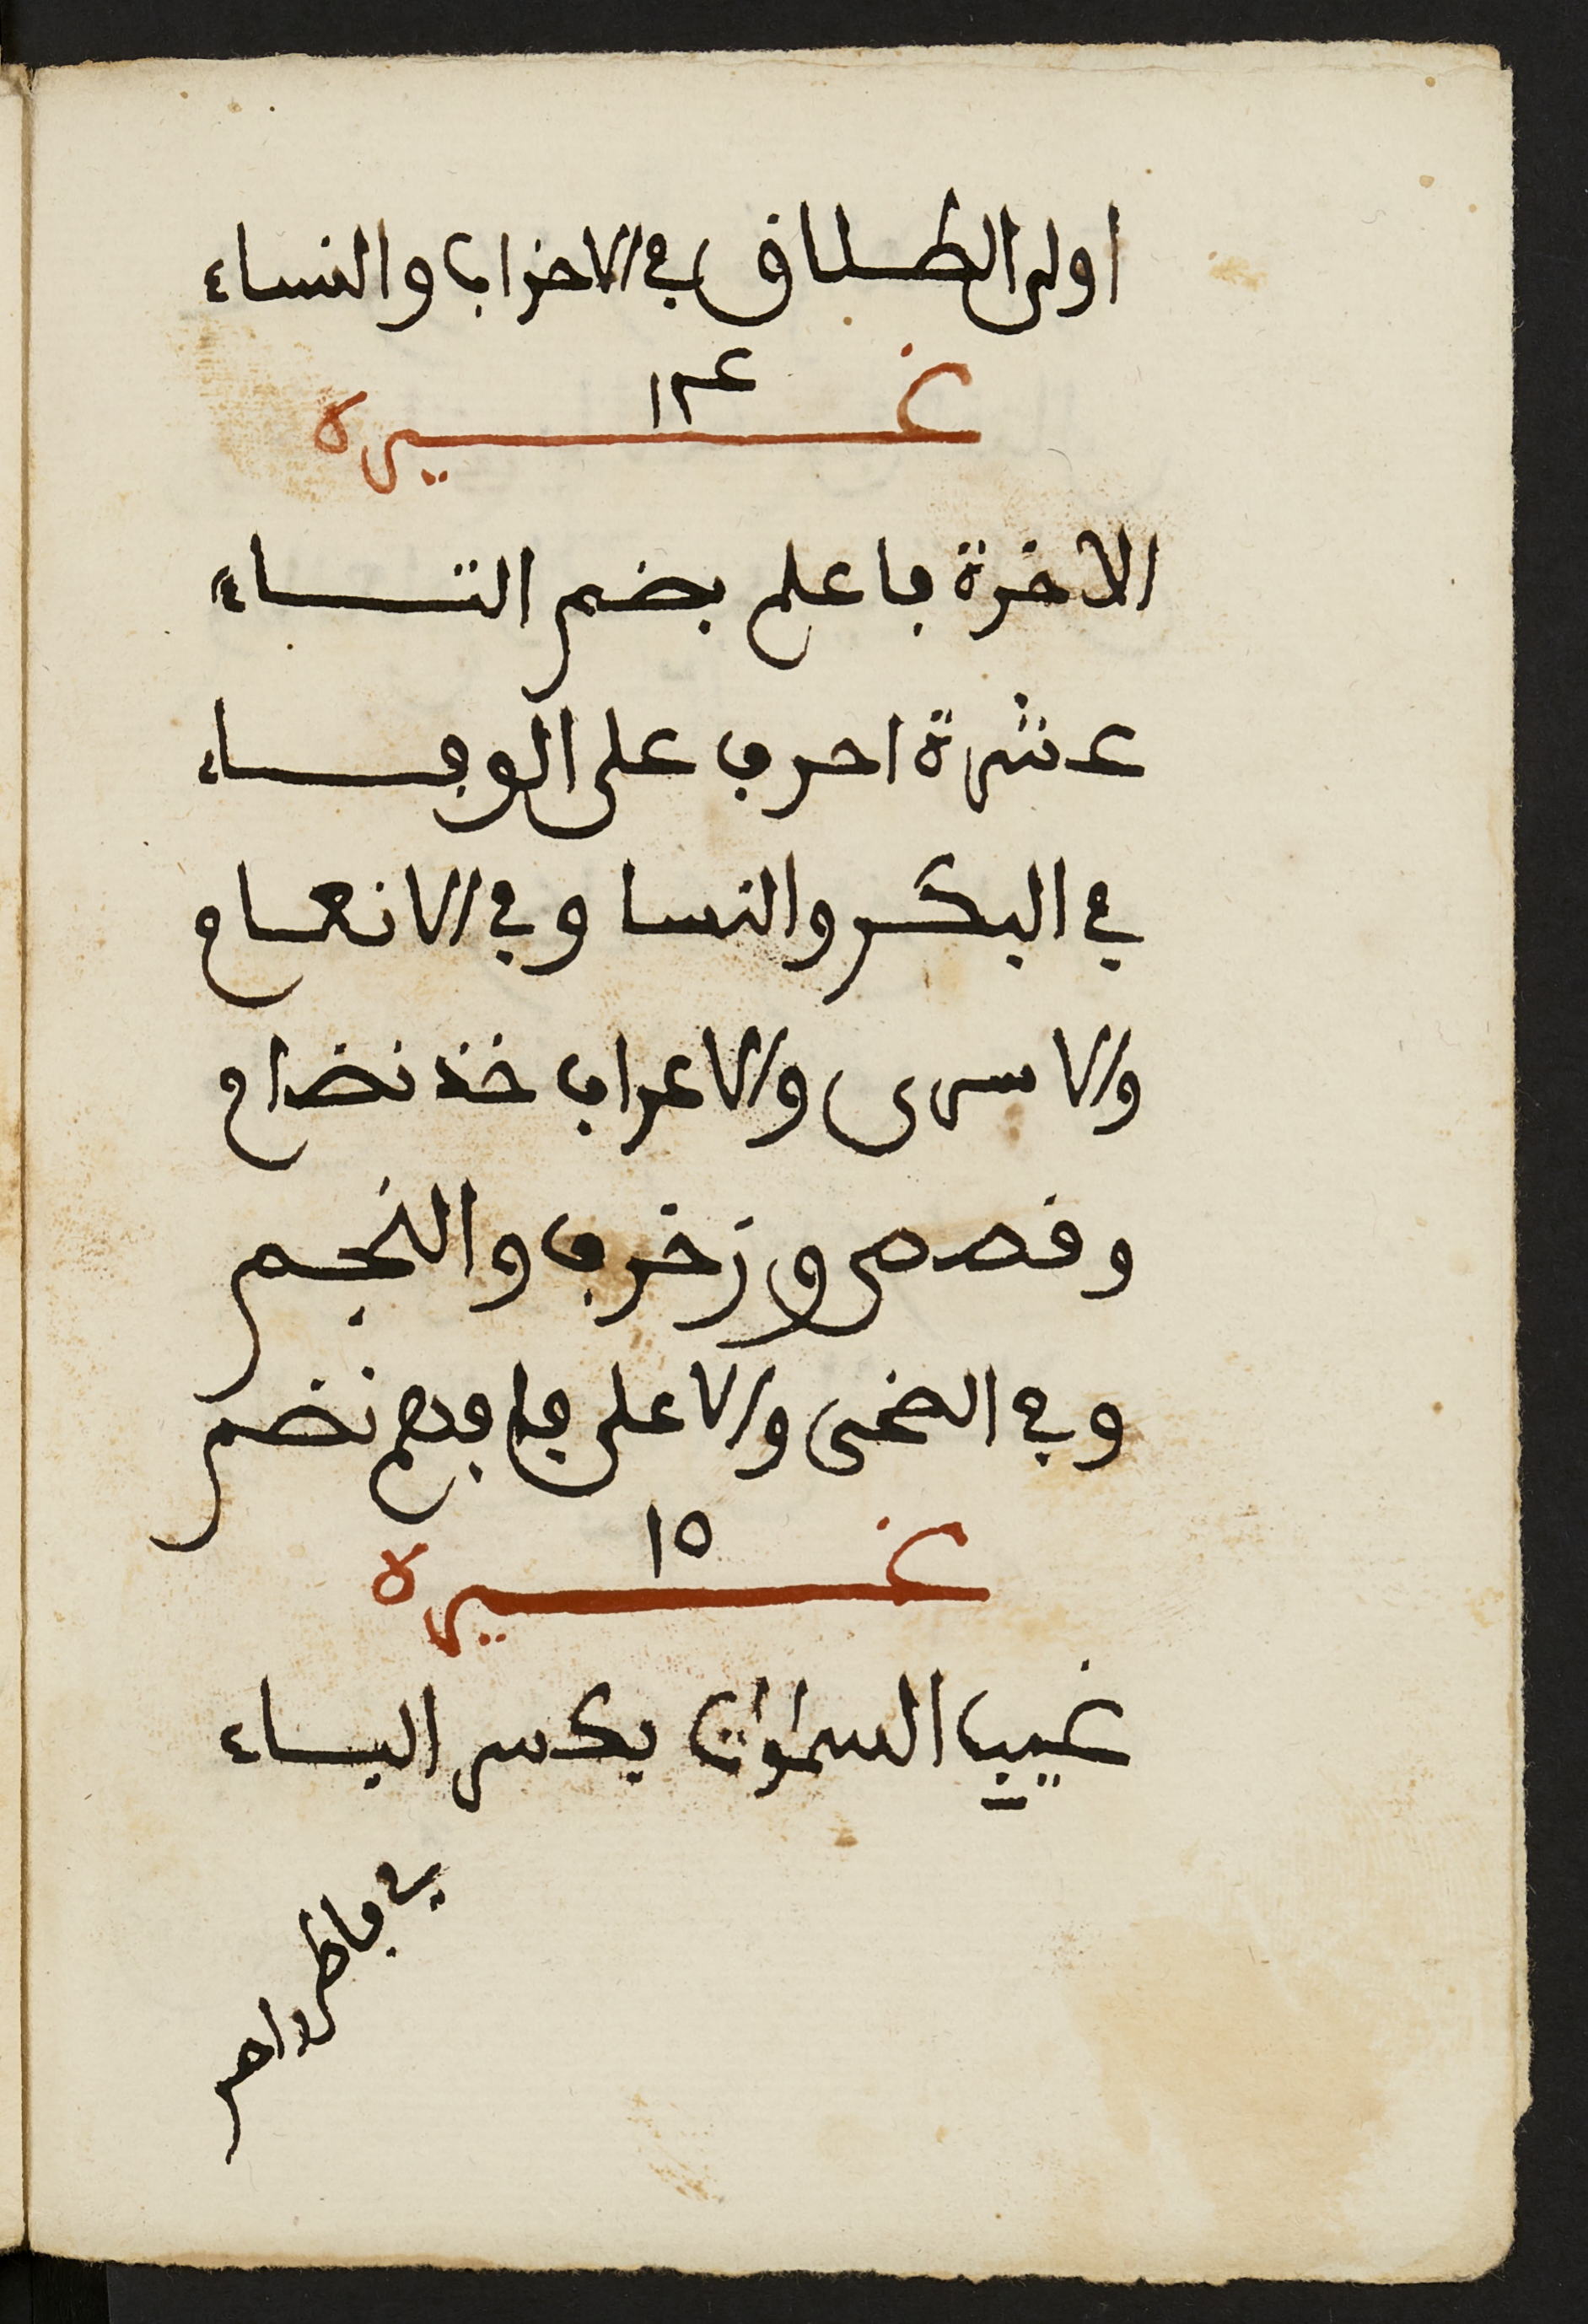 اولى الطلاق في الاحزاب والنساء
١٤
غيره
الاخرة فاعلم بضم التاء
عشرة احرف على الوفاء
في البكر والنسا وفي الانعام
والاسرى والاعراف خذ نضام
وقصص وزخرف والنجم
وفي الضحى والاعلى فافهم نضم
١٥
غيره
غيب السموات بكسر الباء
في فاطر واحر